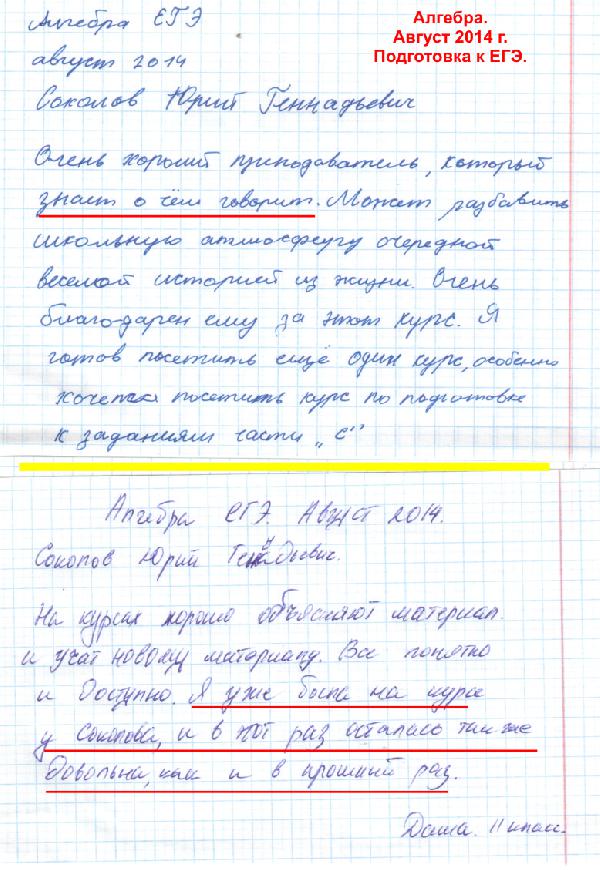 Алгебра ЕГЭ
Алгебра.
Август 2014 г.
Подготовка к ЕГЭ.
август 2014
Соколов Юрий Геннадьевич
Очень хороший преподаватель, который
знает о чём говорит. Может разбавить
школьную атмосферу очередной
веселой историей из жизни. Очень
благодарен ему за этот курс. Я
готов посетить ещё один курс, особенно
хочется посетить курс по подготовке
к заданиям части „С"
Алгебра ЕГЭ. Август 2014.
Соколов Юрий Геннадьевич.
На курсах хорошо объясняют материал
и учат новому материалу. Все понятно
и доступно. Я уже была на курсе
у Соколова, и в этот раз осталась так же
довольна, как и в прошлый раз.
Даша. 11 класс.